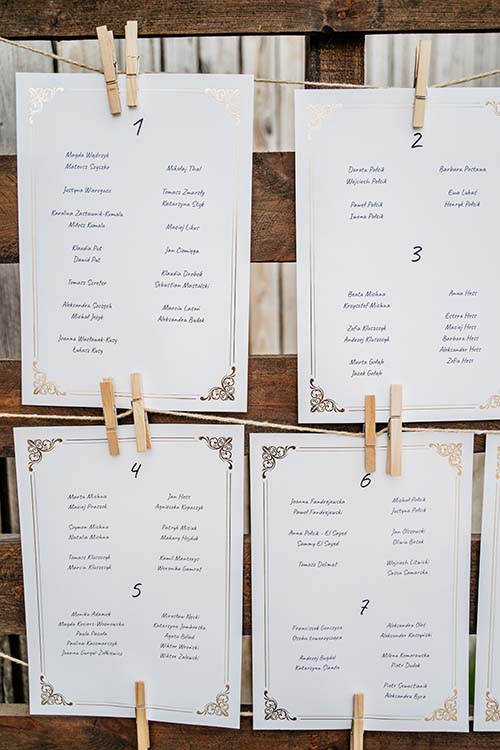 1
Magda Wądrzyk
Mateusz Soyczko
Justyna Warzgasz
Karolina Zastawnik-Komala
Miłosz Komala
Klaudia Put
Dawid Put
Tomasz Screter
Aleksandra Szczych
Michał Jeżyk
Joanna Wacławek-Kuzy
Łukasz Kuzy
Mikołaj Thal
Tomasz Zmarzły
Katarzyna Styk
Maciej Likus
Jan Ciemięga
Klaudia Drobek
Sebastian Mastalski
Marcin Lasoń
Aleksandra Budek
2
Dorota Polcik
Wojciech Polcik
Paweł Polcik
Iwona Polcik
Barbara Postawa
Ewa Lubaś
Henryk Polcik
3
Beata Michna
Krzysztof Michna
Zofia Kluszczyk
Andrzej Kluszczyk
Marta Gołąb
Jacek Gołąb
Anna Hess
Estera Hess
Maciej Hess
Barbara Hess
Aleksander Hess
Zofia Hess
4
Marta Michna
Maciej Praszek
Szymon Michna
Natalia Michna
Tomasz Kluszczyk
Marcin Kluszczyk
Jan Hess
Agnieszka Kopaczyk
Patryk Misiak
Makary Hojduk
Kamil Mentorys
Weronika Gamrat
5
Monika Adamek
Magda Koclerz-Woźnowska
Paula Pazoła
Paulina Kaczmarczyk
Joanna Gurgul-Ziółkiewicz
Mirosław Nęcki
Katarzyna Jamborska
Agata Bilard
Wiktor Wroński
Wiktor Zalewski
6
Joanna Fundrejewska
Paweł Fundrejewski
Anna Polcik - El Sayed
Sammy El Sayed
Tomasz Delmat
Michał Polcik
Justyna Polcik
Jan Olszowski
Oliwia Bożek
Wojciech Litwicki
Sasza Samarska
7
Franciszek Gorczyca
Osoba towarzysząca
Andrzej Bugdol
Katarzyna Ślanda
Aleksandra Oleś
Aleksander Koczyński
Milena Komorowska
Piotr Dudek
Piotr Sewastianik
Aleksandra Byra